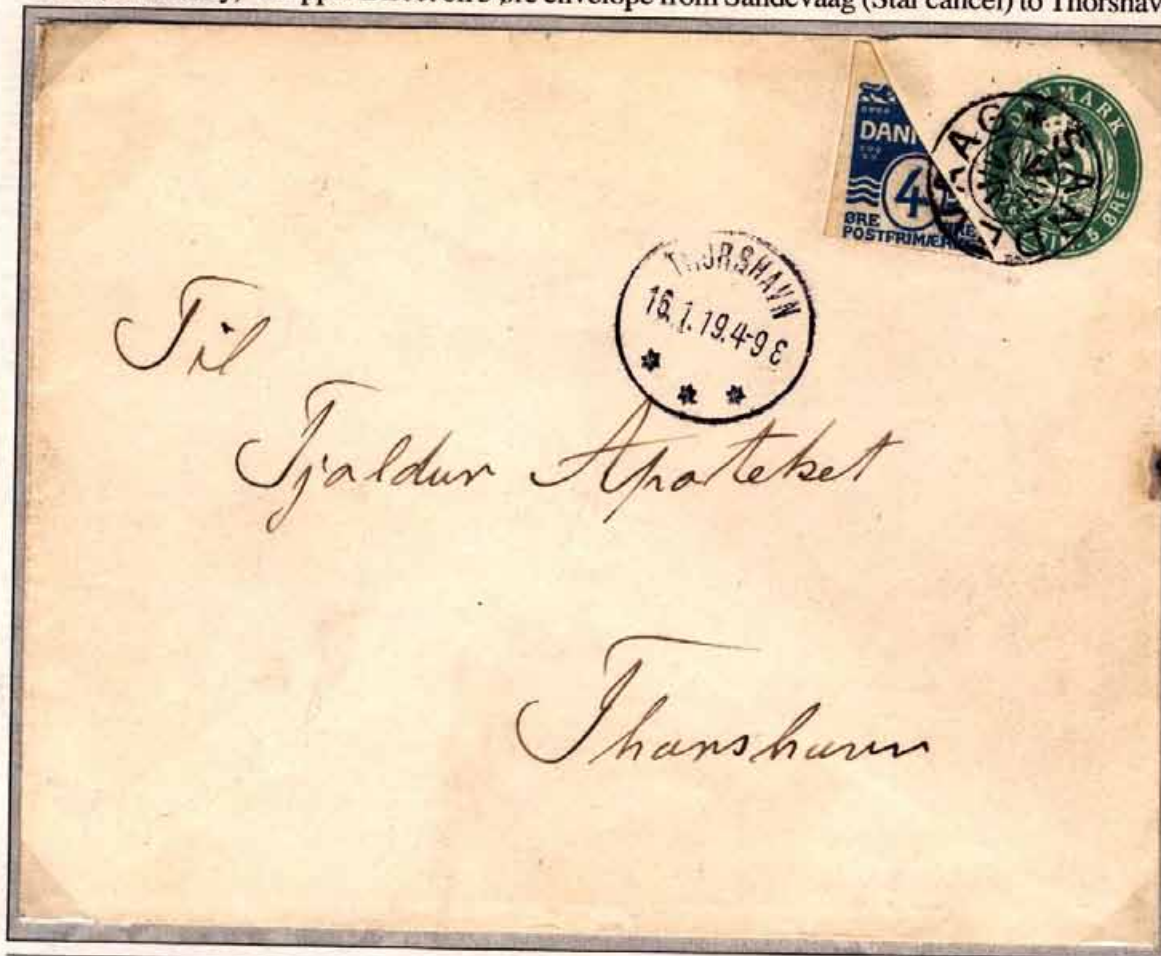 on 5 øre envelope from Sandevaag (Star cancel) to Thorshav
DAN
4
ØRE
POSTFRIMÆR
DANMARK
5 ØRE
SANDEVAAG
THORSHAVN
16.1.19.4-9 E
Til
Tjaldur Apoteket
Thorshavn